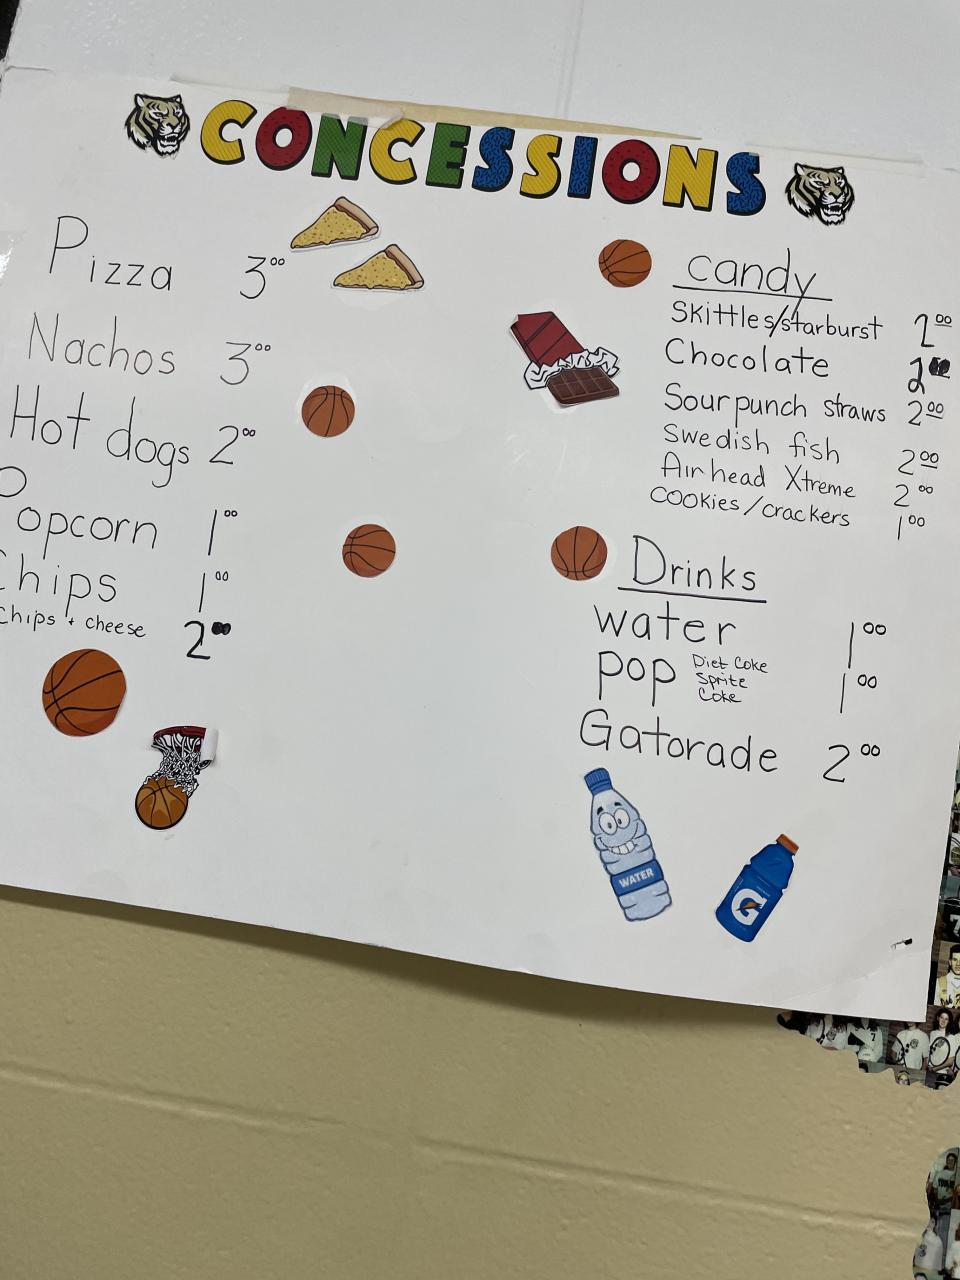 CONCESSIONS
Pizza 3⁰⁰
Nachos 3⁰⁰
Hot dogs 2⁰⁰
Popcorn 1⁰⁰
Chips 1⁰⁰
Chips + cheese 2⁰⁰
candy
Skittles/starburst 2⁰⁰
Chocolate 2⁰⁰
Sour punch straws 2⁰⁰
Swedish fish 2⁰⁰
Airhead Xtreme 2⁰⁰
cookies/crackers 1⁰⁰
Drinks
water 1⁰⁰
pop Diet Coke 1⁰⁰
Sprite
Coke
Gatorade 2⁰⁰
WATER
G